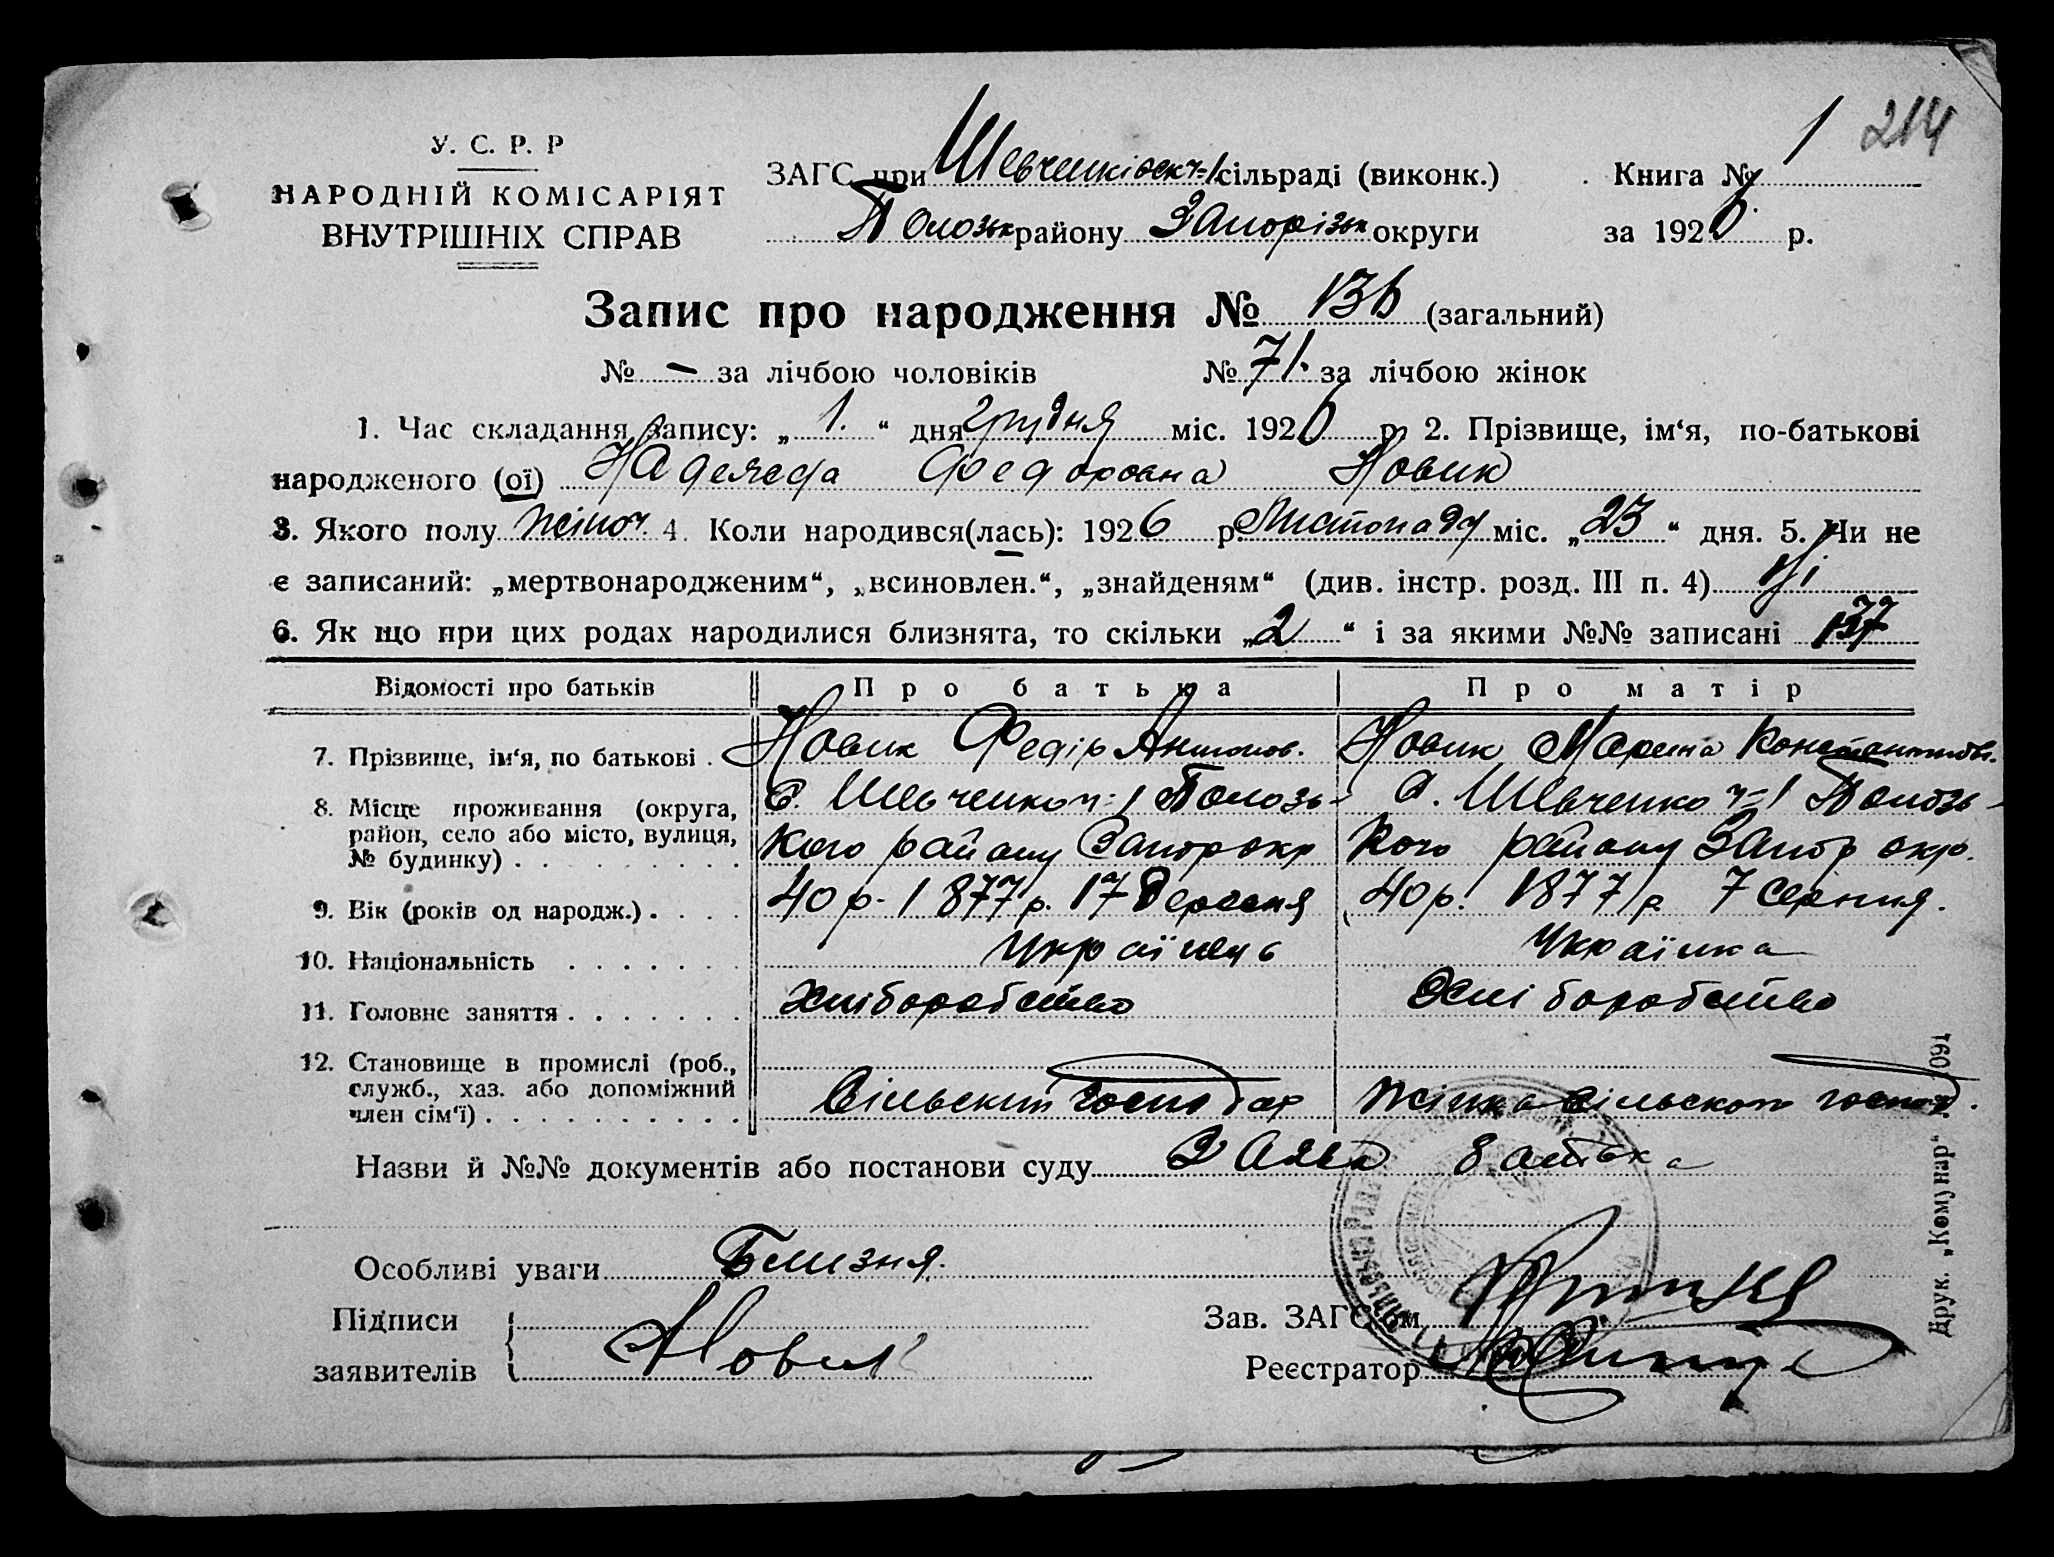 1 214
У. С. Р. Р
НАРОДНІЙ КОМІСАРІЯТ
ВНУТРІШНІХ СПРАВ
ЗАГС при Шевченківськ ч-1 сільраді (виконк.) Книга № 1
Полозьк району Запорізьк округи за 1926 р.
Запис про народження № 136 (загальний)
№ - за лічбою чоловіків № 71. за лічбою жінок
1. Час складання запису: „ 1. “ дня грудня міс. 1926 р. 2. Прізвище, ім‘я, по-батькові
народженого (ої) Надежда Федоровна Новик
3. Якого полу жіноч 4. Коли народився(лась): 1926 р. Листопаду міс. „ 23 “ дня. 5. Чи не
є записаний: „мертвонародженим“, „всиновлен.“, „знайденям“ (див. інстр. розд. III п. 4) Ні
6. Як що при цих родах народилися близнята, то скільки „ 2 “ і за якими №№ записані 137
Відомості про батьків Про батька Про матір
7. Прізвище, ім‘я, по батькові . Новик Федір Антонов. Новик Марина Константинов.
8. Місце проживання (округа, район, село або місто, вулиця, № будинку) . . . . . . . . .
С. Шевченко ч-1 Полозь-
кого району Запор окр
С. Шевченко ч-1 Полозь-
кого району Запор окр.
9. Вік (років од народж.) . . . . 40 р. 1877 р. 17 Вересня 40 р. 1877 р 7 Серпня.
10. Національність . . . . . . . Українець Українка
11. Головне заняття . . . . . . . Хліборобство Хліборобство
12. Становище в промислі (роб., служб., хаз. або допоміжний член сім‘ї) . . . . . . . . . .
Сільский господар Жінка сільского господ.
Назви й №№ документів або постанови суду Заява батька
Особливі уваги Близня.
Підписи
заявителів Новик
Зав. ЗАГС‘ом
Реєстратор
Друк. „Комунар“ 1091